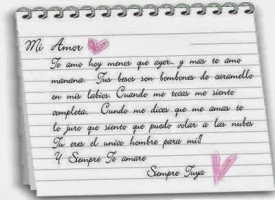 Mi Amor
Te amo hoy menos que ayer. y mas te amo
manana. Tus besos son bombones de caramello
en mis labios. Cuando me tocas me siento
completa. Cundo me dices que me amas te
lo juro que siento que puedo volar a las nubes
Tu eres el unico hombre para mi!!
Y Siempre Te amare
Siempre Tuya